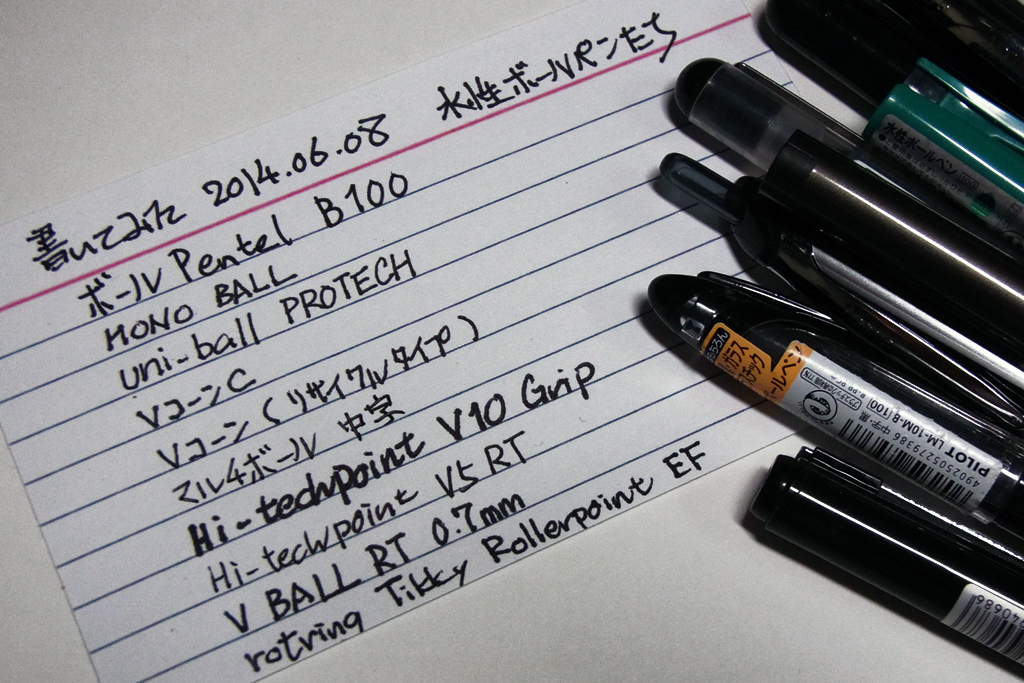 書いてみた 2014.06.08 水性ボールペンたち
ボール Pentel B100
MONO BALL
uni-ball PROTECH
VコーンC
Vコーン (リサイクルタイプ)
マルチボール 中字
Hi-techpoint V10 Grip
Hi-techpoint V5 RT
V BALL RT 0.7mm
rotring Tikky Rollerpoint EF
水性ボールペン
もちろん
ガラス
ールペン
4902505279386 中字・黒
PILOT LM-10M-B(100)
40686